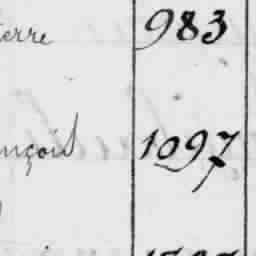 ierre 983
nçois 1097